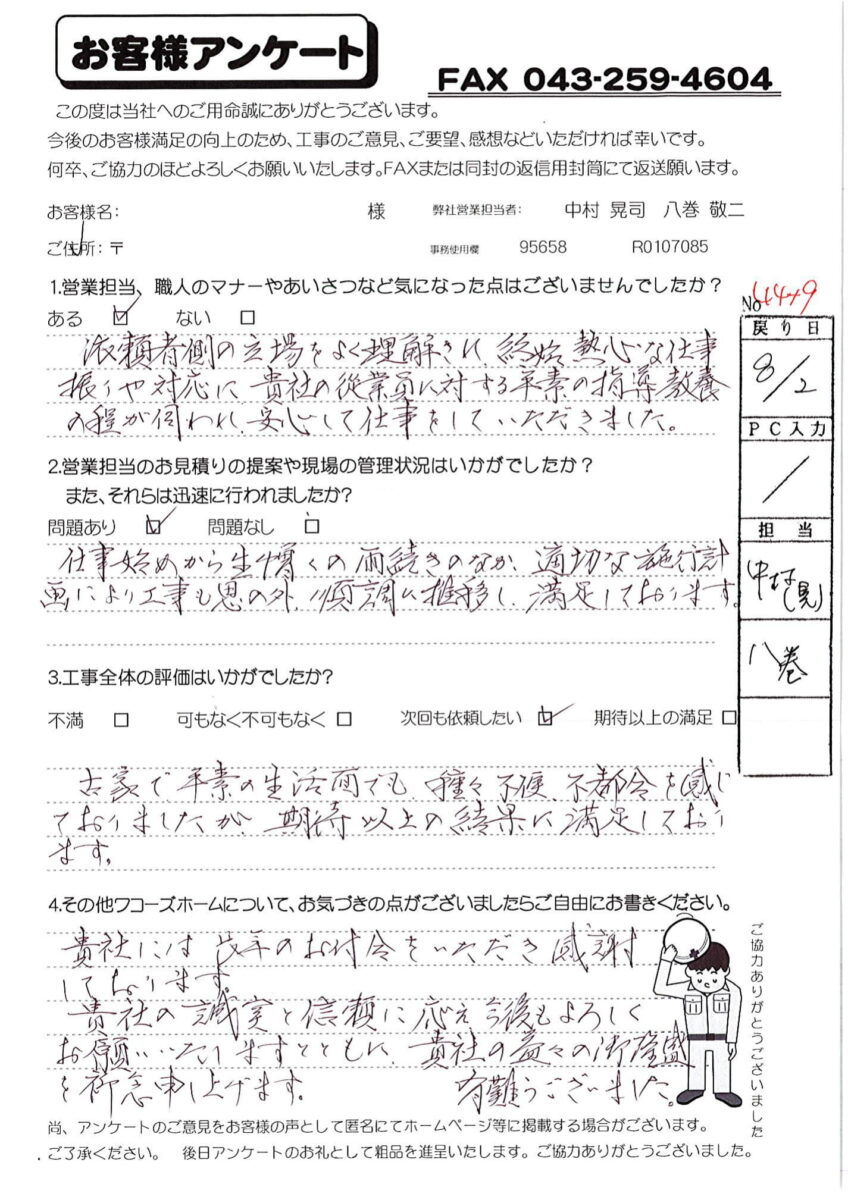 お客様アンケート
FAX 043-259-4604
この度は当社へのご用命誠にありがとうございます。
今後のお客様満足の向上のため、工事のご意見、ご要望、感想などいただければ幸いです。
何卒、ご協力のほどよろしくお願いいたします。FAXまたは同封の返信用封筒にて返送願います。
お客様名: 様 弊社営業担当者: 中村 晃司 八巻 敬二
ご住所:〒 事務使用欄 95658 R0107085
1.営業担当、職人のマナーやあいさつなど気になった点はございませんでしたか?
ある ☑ ない □
依頼者側の立場をよく理解され、終始熱心な仕事
振りや対応に貴社の従業員に対する平素の指導教養
の程が伺われ、安心して仕事をしていただきました。
2.営業担当のお見積りの提案や現場の管理状況はいかがでしたか?
また、それらは迅速に行われましたか?
問題あり ☑ 問題なし □
仕事始めから生憎くの雨続きのなか、適切な施行計
画により工事も思の外、順調に推移し、満足しております。
3.工事全体の評価はいかがでしたか?
不満 □ 可もなく不可もなく □ 次回も依頼したい ☑ 期待以上の満足 □
古家で平素の生活面でも、種々不便、不都合を感じ
ておりましたが、期待以上の結果に満足しており
ます。
4.その他ワコーズホームについて、お気づきの点がございましたらご自由にお書きください。
貴社には 年のお付合をいただき感謝
しております。
貴社の誠実と信頼に応え今後もよろしく
お願いいたしますとともに、貴社の益々の御隆盛
を祈念申し上げます。 有難うございました。
尚、アンケートのご意見をお客様の声として匿名にてホームページ等に掲載する場合がございます。
ご了承ください。 後日アンケートのお礼として粗品を進呈いたします。ご協力ありがとうございました。
ご協力ありがとうございました
No
戻り日
8/2
PC入力
/
担当
中村(晃)
八巻